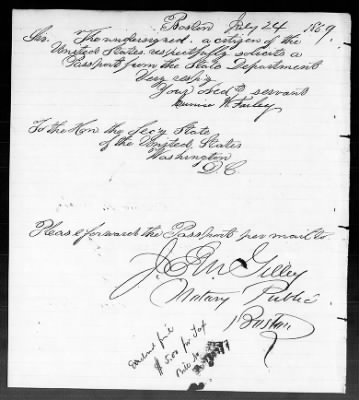 Boston July 24 1869
Sir, The undersigned, a citizen of the
United States, respectfully solicits a
Passport from the State Department
Very resp'y
Your obed't servant
Eunice W. Farley
To the Hon the Sec'y State
of the United States
Washington
D.C.
Please forward the Passport per mail to
J.E.M. Gilley
Notary Public
Boston
Enclosed find
$ 5.00 for Tax